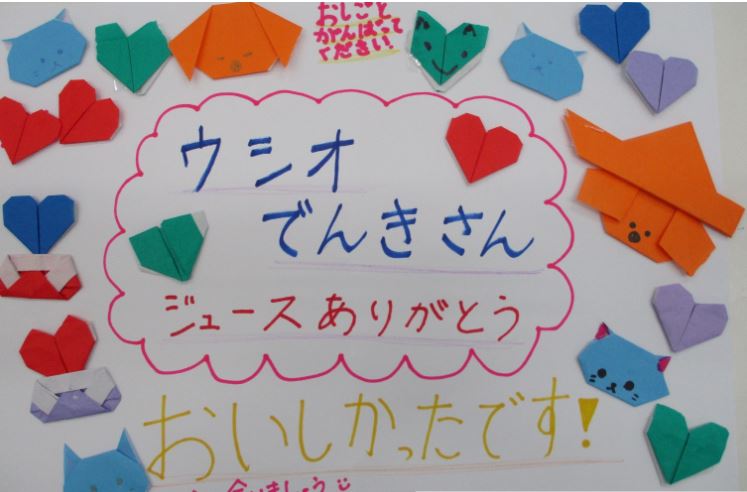 おしごと
がんばって
ください!
ウシオ
でんきさん
ジュースありがとう
おいしかったです!
会いましょう